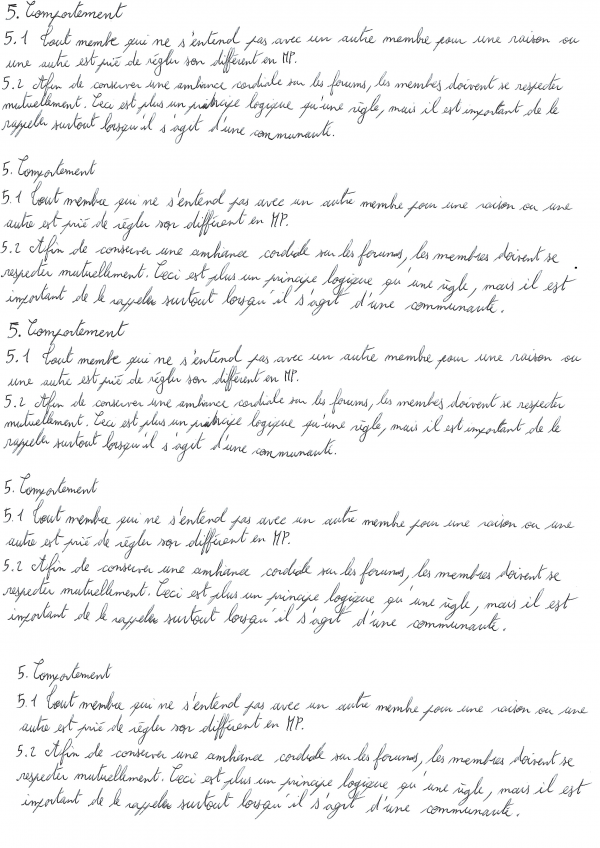 5. Comportement
5.1 Tout membre qui ne s'entend pas avec un autre membre pour une raison ou
une autre est prié de régler son différent en MP.
5.2 Afin de conserver une ambiance cordiale sur les forums, les membres doivent se respecter
mutuellement. Ceci est plus un principe logique qu'une règle, mais il est important de le
rappeler surtout lorsqu'il s'agit d'une communauté.
5. Comportement
5.1 Tout membre qui ne s'entend pas avec un autre membre pour une raison ou une
autre est prié de régler son différent en MP.
5.2 Afin de conserver une ambiance cordiale sur les forums, les membres doivent se
respecter mutuellement. Ceci est plus un principe logique qu'une règle, mais il est
important de le rappeler surtout lorsqu'il s'agit d'une communauté.
5. Comportement
5.1 Tout membre qui ne s'entend pas avec un autre membre pour une raison ou
une autre est prié de régler son différent en MP.
5.2 Afin de conserver une ambiance cordiale sur les forums, les membres doivent se respecter
mutuellement. Ceci est plus un principe logique qu'une règle, mais il est important de le
rappeler surtout lorsqu'il s'agit d'une communauté.
5. Comportement
5.1 Tout membre qui ne s'entend pas avec un autre membre pour une raison ou une
autre est prié de régler son différent en MP.
5.2 Afin de conserver une ambiance cordiale sur les forums, les membres doivent se
respecter mutuellement. Ceci est plus un principe logique qu'une règle, mais il est
important de le rappeler surtout lorsqu'il s'agit d'une communauté.
5. Comportement
5.1 Tout membre qui ne s'entend pas avec un autre membre pour une raison ou une
autre est prié de régler son différent en MP.
5.2 Afin de conserver une ambiance cordiale sur les forums, les membres doivent se
respecter mutuellement. Ceci est plus un principe logique qu'une règle, mais il est
important de le rappeler surtout lorsqu'il s'agit d'une communauté.